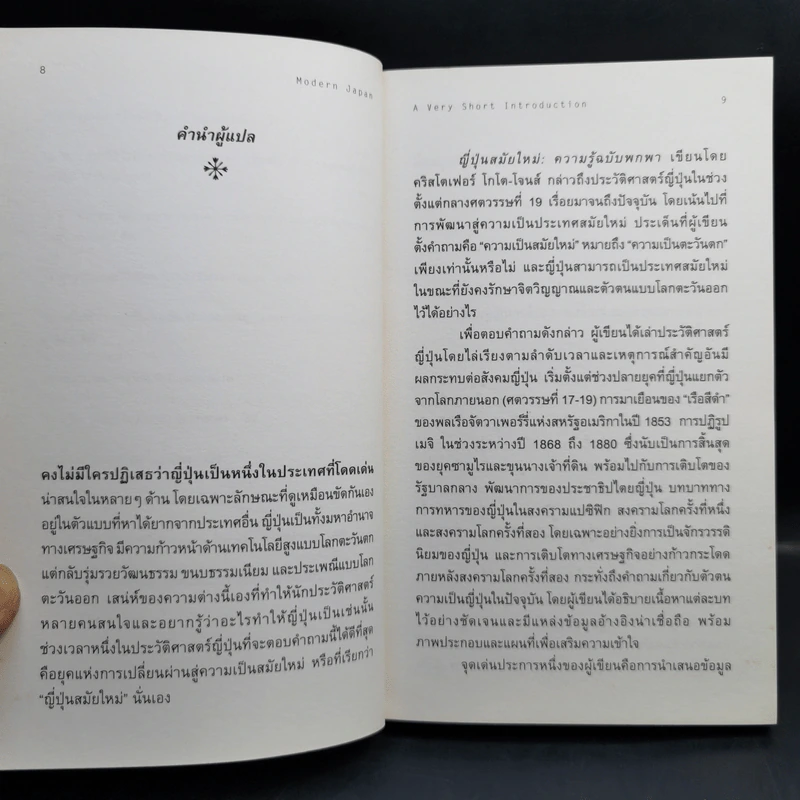 8
Modern Japan
คำนำผู้แปล
คงไม่มีใครปฏิเสธว่าญี่ปุ่นเป็นหนึ่งในประเทศที่โดดเด่น
น่าสนใจในหลายๆ ด้าน โดยเฉพาะลักษณะที่ดูเหมือนขัดกันเอง
อยู่ในตัวแบบที่หาได้ยากจากประเทศอื่น ญี่ปุ่นเป็นทั้งมหาอำนาจ
ทางเศรษฐกิจ มีความก้าวหน้าด้านเทคโนโลยีสูงแบบโลกตะวันตก
แต่กลับรุ่มรวยวัฒนธรรม ขนบธรรมเนียม และประเพณีแบบโลก
ตะวันออก เสน่ห์ของความต่างนี้เองที่ทำให้นักประวัติศาสตร์
หลายคนสนใจและอยากรู้ว่าอะไรทำให้ญี่ปุ่นเป็นเช่นนั้น
ช่วงเวลาหนึ่งในประวัติศาสตร์ญี่ปุ่นที่จะตอบคำถามนี้ได้ดีที่สุด
คือยุคแห่งการเปลี่ยนผ่านสู่ความเป็นสมัยใหม่ หรือที่เรียกว่า
“ญี่ปุ่นสมัยใหม่” นั่นเอง
A Very Short Introduction
9
ญี่ปุ่นสมัยใหม่: ความรู้ฉบับพกพา เขียนโดย
คริสโตเฟอร์ โกโต-โจนส์ กล่าวถึงประวัติศาสตร์ญี่ปุ่นในช่วง
ตั้งแต่กลางศตวรรษที่ 19 เรื่อยมาจนถึงปัจจุบัน โดยเน้นไปที่
การพัฒนาสู่ความเป็นประเทศสมัยใหม่ ประเด็นที่ผู้เขียน
ตั้งคำถามคือ “ความเป็นสมัยใหม่” หมายถึง “ความเป็นตะวันตก”
เพียงเท่านั้นหรือไม่ และญี่ปุ่นสามารถเป็นประเทศสมัยใหม่
ในขณะที่ยังคงรักษาจิตวิญญาณและตัวตนแบบโลกตะวันออก
ไว้ได้อย่างไร
เพื่อตอบคำถามดังกล่าว ผู้เขียนได้เล่าประวัติศาสตร์
ญี่ปุ่นโดยไล่เรียงตามลำดับเวลาและเหตุการณ์สำคัญอันมี
ผลกระทบต่อสังคมญี่ปุ่น เริ่มตั้งแต่ช่วงปลายยุคที่ญี่ปุ่นแยกตัว
จากโลกภายนอก (ศตวรรษที่ 17-19) การมาเยือนของ “เรือสีดำ”
ของพลเรือจัตวาเพอร์รีแห่งสหรัฐอเมริกาในปี 1853 การปฏิรูป
เมจิ ในช่วงระหว่างปี 1868 ถึง 1880 ซึ่งนับเป็นการสิ้นสุด
ของยุคซามูไรและขุนนางเจ้าที่ดิน พร้อมไปกับการเติบโตของ
รัฐบาลกลาง พัฒนาการของประชาธิปไตยญี่ปุ่น บทบาททาง
การทหารของญี่ปุ่นในสงครามแปซิฟิก สงครามโลกครั้งที่หนึ่ง
และสงครามโลกครั้งที่สอง โดยเฉพาะอย่างยิ่งการเป็นจักรวรรดิ
นิยมของญี่ปุ่น และการเติบโตทางเศรษฐกิจอย่างก้าวกระโดด
ภายหลังสงครามโลกครั้งที่สอง กระทั่งถึงคำถามเกี่ยวกับตัวตน
ความเป็นญี่ปุ่นในปัจจุบัน โดยผู้เขียนได้อธิบายเนื้อหาแต่ละบท
ไว้อย่างชัดเจนและมีแหล่งข้อมูลอ้างอิงน่าเชื่อถือ พร้อม
ภาพประกอบและแผนที่เพื่อเสริมความเข้าใจ
จุดเด่นประการหนึ่งของผู้เขียนคือการนำเสนอข้อมูล